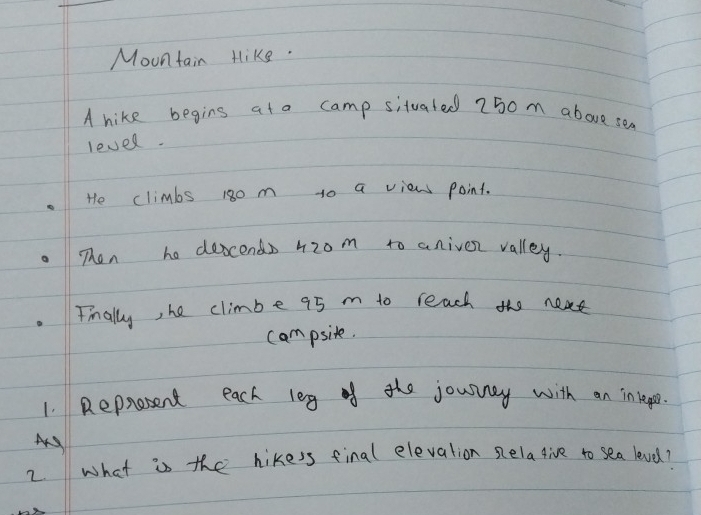 Mountain Hike.
A hike begins at a camp situated 250 m above sea
level.
• He climbs 180 m to a view point.
• Then he descends 420 m to a river valley.
• Finally, he climb e 95 m to reach the next
campsite.
1. Represent each leg of the journey with an integer.
Ans
2. What is the hikers final elevation relative to sea level?